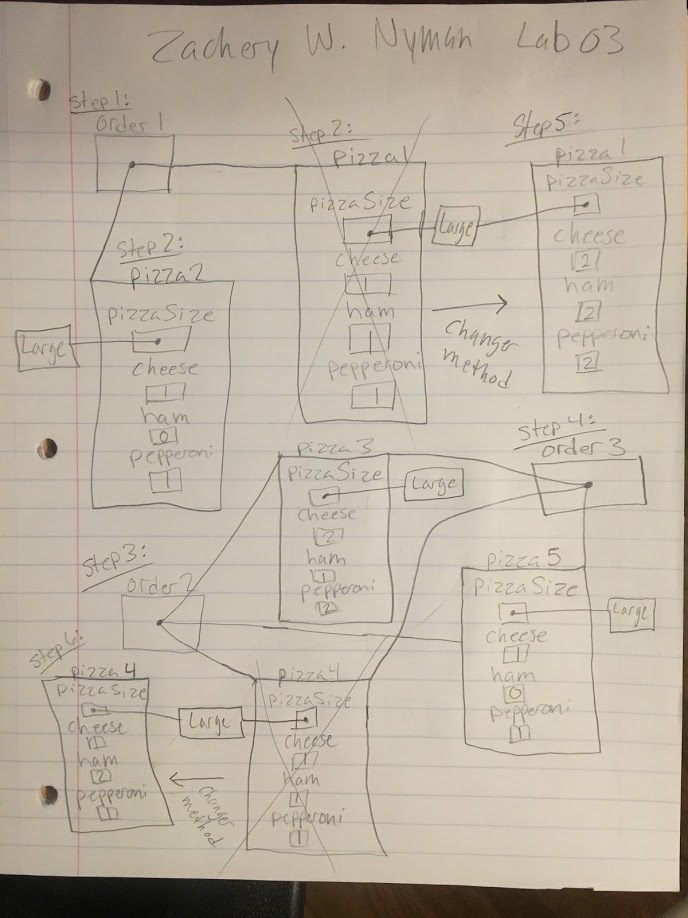 Zachery W. Nyman Lab 03
Step 1:
Order 1
Step 2:
pizza1
pizzaSize
Large
cheese
1
ham
1
pepperoni
1
changer
method
Step 5:
pizza1
pizzaSize
cheese
2
ham
2
pepperoni
2
Step 2:
pizza2
pizzaSize
Large
cheese
1
ham
0
pepperoni
1
pizza3
pizzaSize
Large
cheese
2
ham
1
pepperoni
2
Step 4:
order 3
Step 3:
order 2
pizza5
pizzaSize
Large
cheese
1
ham
0
pepperoni
1
Step 6:
pizza4
pizzaSize
Large
cheese
1
ham
2
pepperoni
1
changer
method
pizza4
pizzaSize
cheese
1
ham
1
pepperoni
1